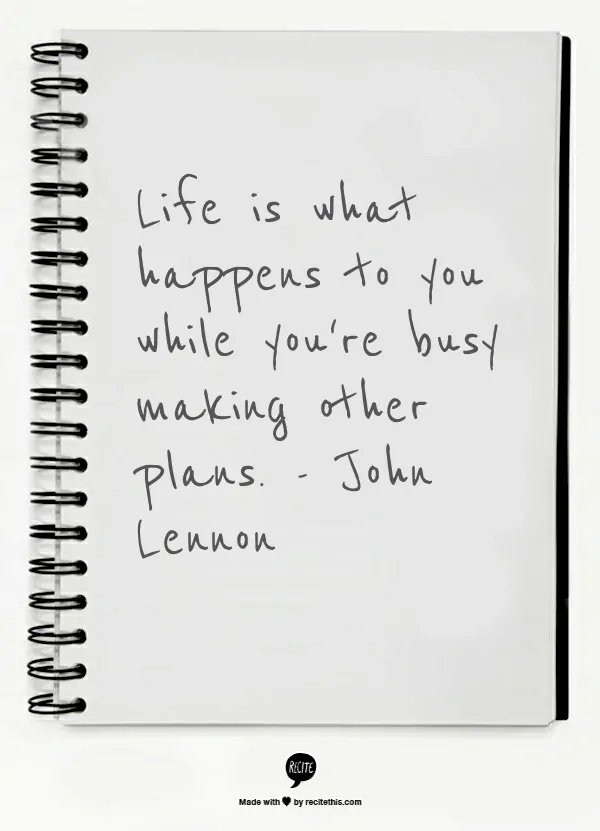 Life is what
happens to you
while you're busy
making other
plans. - John
Lennon
RECITE
Made with ♥ by recitethis.com